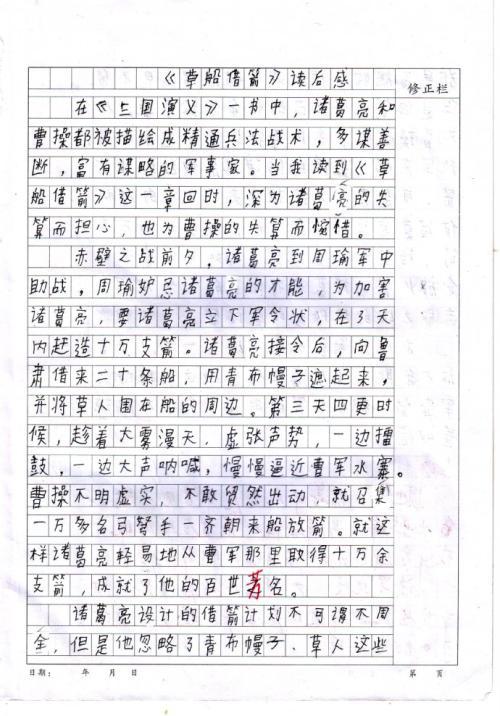 《草船借箭》读后感
修正栏
在《三国演义》一书中，诸葛亮和
曹操都被描绘成精通兵法战术，多谋善
断，富有谋略的军事家。当我读到《草
船借箭》这一章回时，深为诸葛亮的失
算而担心，也为曹操的失算而惋惜。
赤壁之战前夕，诸葛亮到周瑜军中
助战，周瑜妒忌诸葛亮的才能，为加害
诸葛亮，要诸葛亮立下军令状，在了天
内赶造十万支箭。诸葛亮接令后，向鲁
肃借来二十条船，用青布幔子遮起来，
并将草人围在船的周边。第三天四更时
候，趁着大雾漫天，虚张声势，一边擂
鼓，一边大声呐喊，慢慢逼近曹军水寨。
曹操不明虚实，不敢贸然出动，就召集
一万多名弓弩手一齐朝来船放箭。就这
样诸葛亮轻易地从曹军那里取得十万余
支箭，成就了他的百世芳名。
诸葛亮设计的借箭计划不可谓不周
全，但是他忽略了青布幔子、草人这些
日期： 年 月 日
第 页